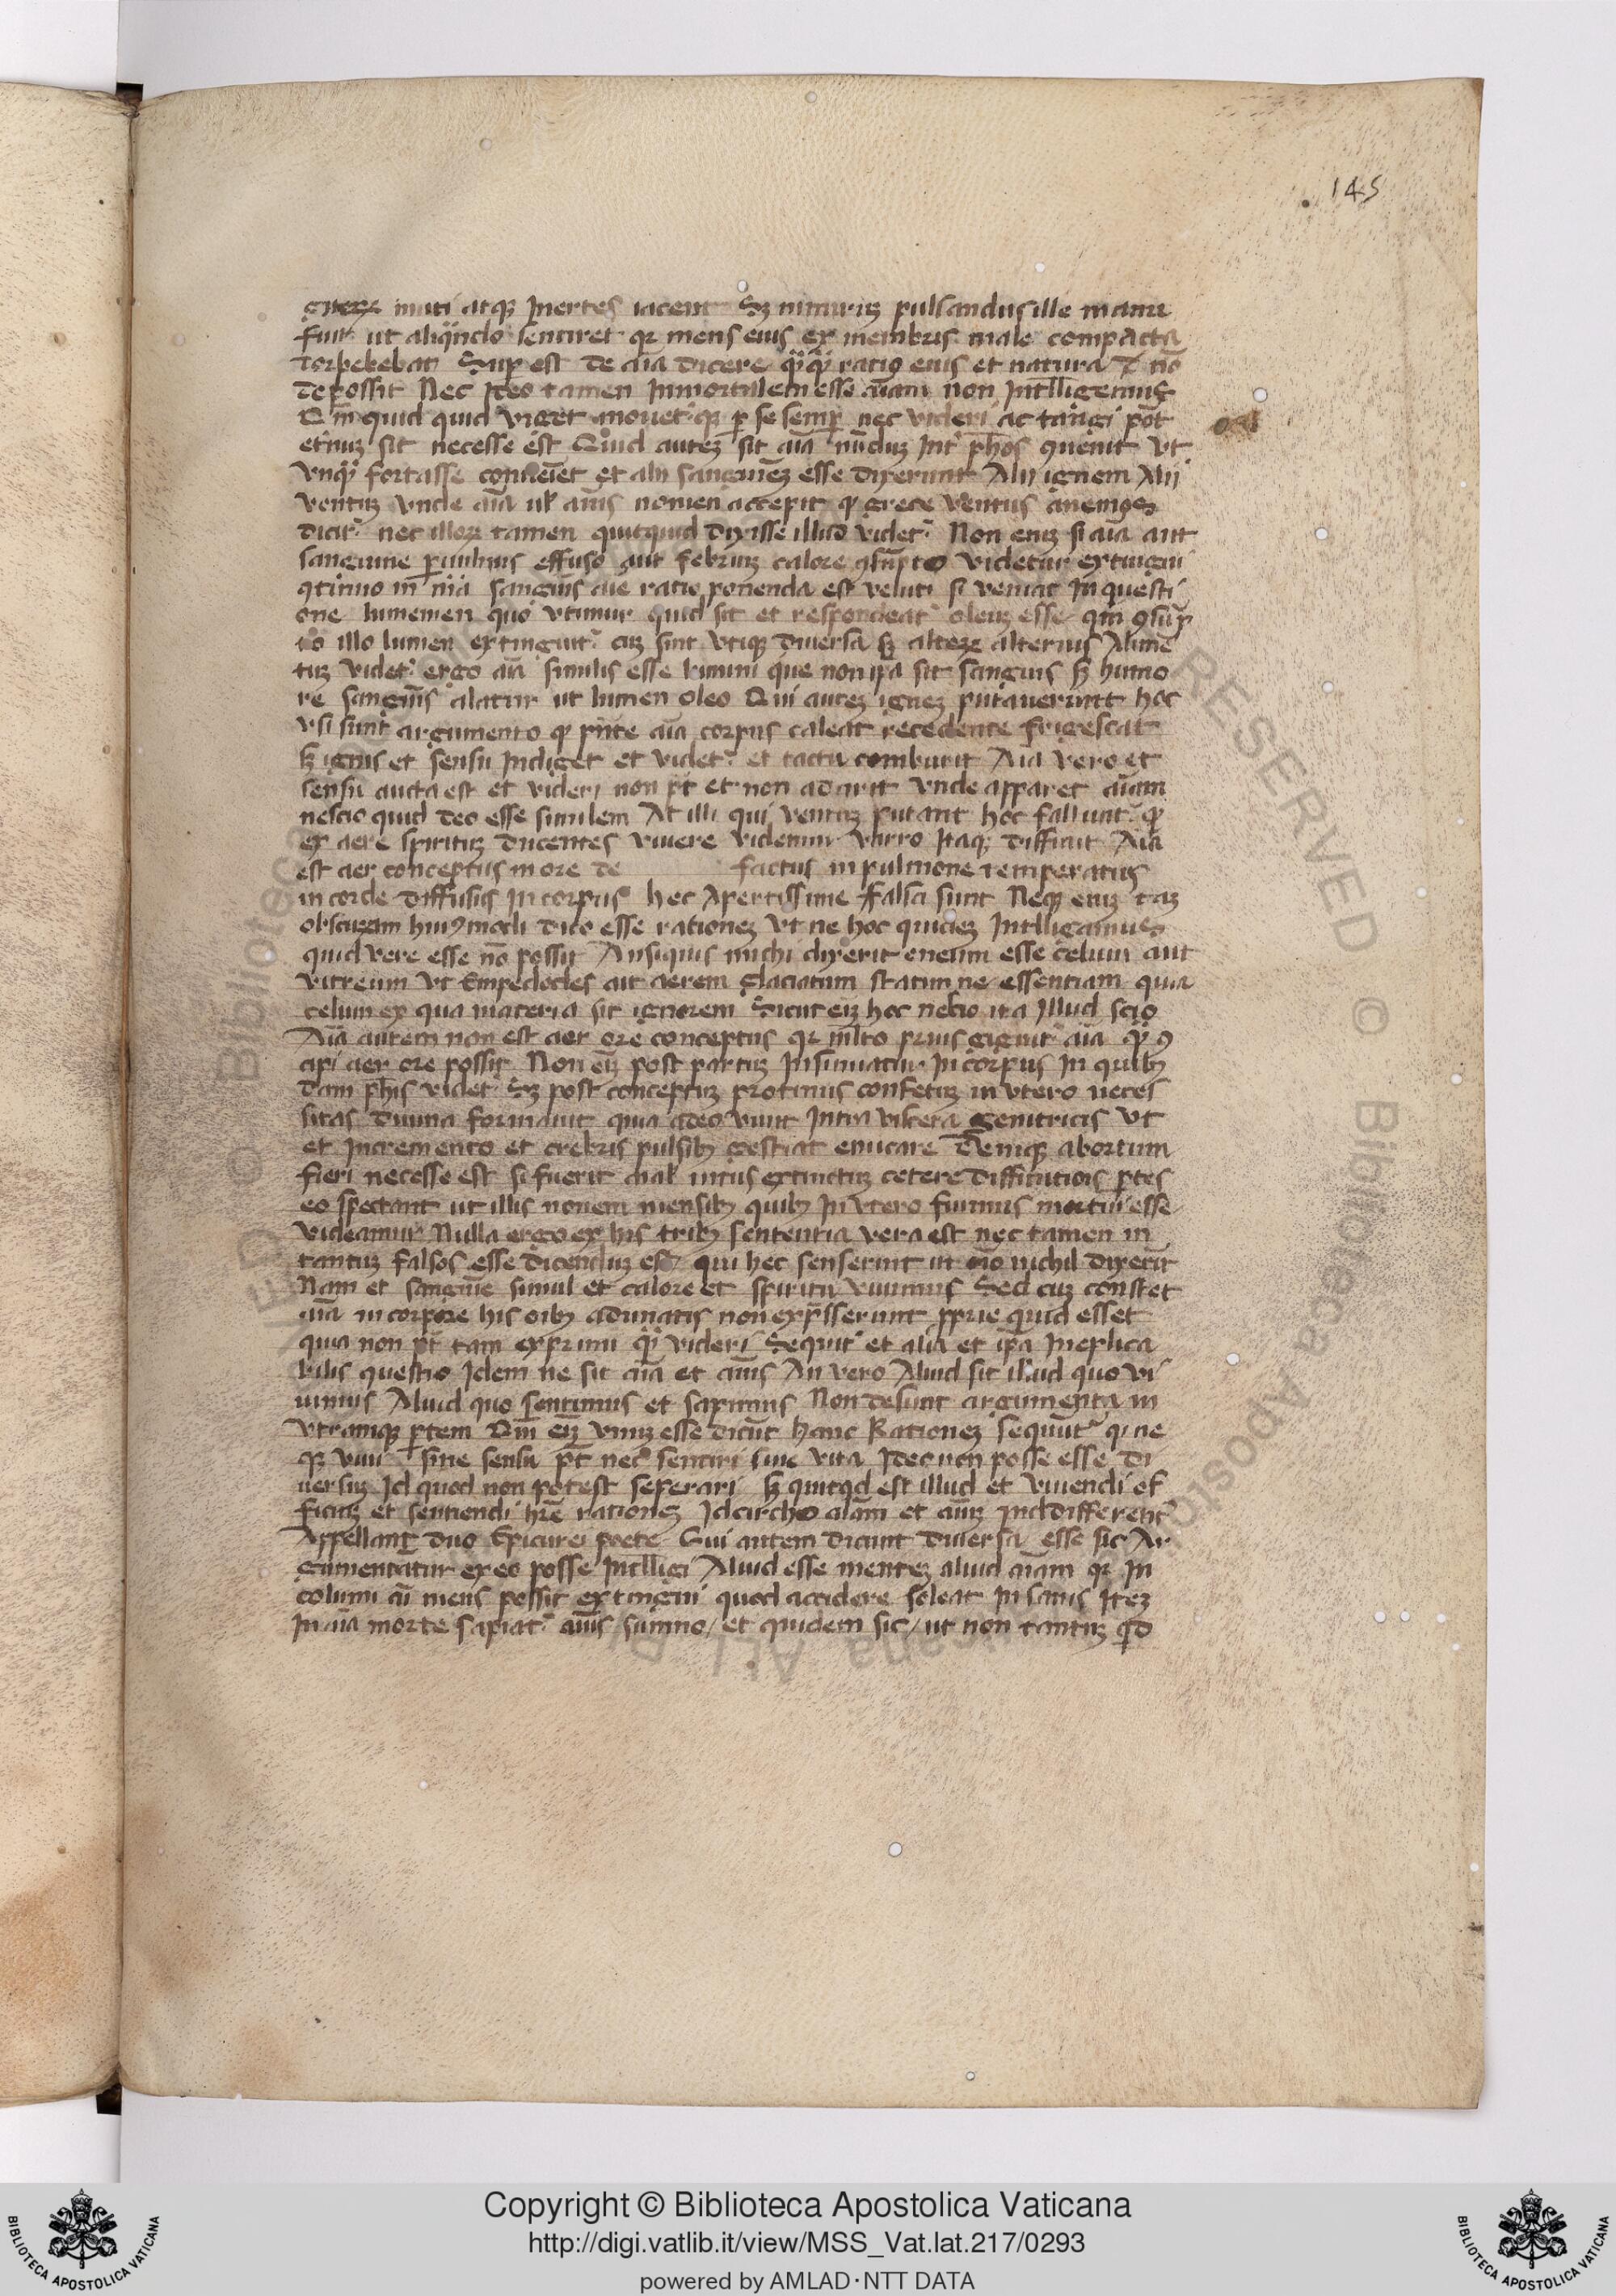 145
muti atq; Inertes iacent Sꝫ nimiruꝫ pulsandus ille manu
fuit ut aliqn̄do sentiret qꝛ mens eius ex membris male compacta
torpebebat Sup̄ est de aīa dicere qͣꝙͣ ratio eius et natura
possit Nec Ideo tamen Inmortalem esse aīam non Intelligemus
Qm̄ quid quid viget mouetqꝫ p̱ se semp̱ nec videri ac tangi pōt
et̄nuꝫ sit necesse est Quid auteꝫ sit aīa nūduꝫ Int̄ ph̄os ꝯuenit vt
vnqͣ fortasse conueīet et alii sanguineꝫ esse dixerunt Alii ignem Alii
ventuꝫ vnde aīa ul̄ aīus nomen accepit ꝙ grece ventus anemos
dicit̄ nec illoꝝ tamen quicquid dixisse illud videt̄ Non eniꝫ si aīa aut
sanguine p̱ uulnus effuso aut febriuꝫ calore ꝯsūpto videtur extingui
ꝯtinuo in m̄ia sanguīs aīe ratio ponenda est veluti si veniat In questi
one lumemen quo vtimur quid sit et respondeat̄ oleuꝫ esse qm̄ ꝯsūp
to illo lumen extinguit̄ cuꝫ sint vtiqꝫ diuersa sꝫ alteꝝ alterius Alimē
tuꝫ videt̄ ergo aīa similis esse lumini que non ip̄a sit sanguis sꝫ humo
re sanguīs alatur ut lumen oleo Qui auteꝫ igneꝫ putauerunt hoc
vsi sunt argumento ꝙ pn̄te aīa corpus caleat recedente frigescat
sꝫ ignis et sensu Indiget et videt̄ et tactu comburit Aīa vero et
sensu aucta est et videri non pt̄ et non adurit vnde apparet aīam
nescio quid deo esse similem At illi qui ventuꝫ putant hoc fallunt̄ ꝙ
ex aere spirituꝫ ducentes viuere videmur Varro Itaqꝫ diffinit Aīa
est aer conceptus in ore de factus in pulmone temperatus
in corde diffusis In corpus hec Apertissime falsa sunt Neqꝫ eniꝫ taꝫ
obscuram hui9modi dico esse rationeꝫ vt ne hoc quideꝫ Intelligamus
quid vere esse nō possit An siquis michi dixerit eneum esse celum aut
vitreum vt Empedocles ait aerem glaciatum statim ne essentiam quia
celum ex qua materia sit ignorem Sicut eīꝫ hoc nescio ita Illud scio
Aīa autem non est aer ore conceptus qꝛ ml̄to prius gignit̄ aīa ꝙͣ ꝯ
cipi aer ore possit Non eīꝫ post partuꝫ Insinuatur In corpus In quibꝫ
dam ph̄is videt̄ Sꝫ post conceptuꝫ protinus confetuꝫ in vtero neces
sitas diuina formauit quia adeo viuit Intra viscera genitricis vt
et Incremento et crebris pulsibꝫ gestiat emicare Deniqꝫ abortum
fieri necesse est si fuerit aīal intus extinctuꝫ cetere diffinitiōis p̱tes
eo spectant ut illis nouem mensibꝫ quibꝫ In vtero fuimus mortui esse
videamur Nulla ergo ex his tribꝫ sententia vera est nec tamen in
tantuꝫ falsos esse dicenduꝫ est qui hec senserint ut oīo nichil dixerīt
Nam et sanguīe simul et calore et spiritu viuimus Sed cuꝫ constet
aīa in corpore his oībꝫ adunatis non exp̄sserunt ꝓprie quid esset
quia non pt̄ tam exprimi qͣꝫ videri Sequit̄ et alia et ip̄a Ineplica
bilis questio Idem ne sit aīa et aīus An vero Aliud sit illud quo vi
uimus Aliud quo sentimus et sapimus Non desunt argumenta in
vtramqꝫ p̱tem Qm̄ eīꝫ vnuꝫ esse dicūt hanc Rationeꝫ sequūt̄ qͥ ne
qꝫ viui sine sensu pt̄ nec sentiri sine vita Ideo non posse esse di
uersuꝫ Id quod non potest seperari sꝫ quitqͥd est illud et viuendi of
ficiuꝫ et sentiendi hr̄e rationeꝫ Idcircho aīam et aīuꝫ Inddifferent̄
Appellant̄ duo Epicurei poete Qui autem dicunt diuersa esse sic Ar
gumentatur ex eo posse Intelligi Aliud esse menteꝫ aliud aīam qꝛ In
columi aīa mens possit extingui quod accidere soleat In sanis Iteꝫ
In aīa morte sapiat̄ aīus sumno / et quidem sic / ut non tantuꝫ ꝙd
Copyright © Biblioteca Apostolica Vaticana
http://digi.vatlib.it/view/MSS_Vat.lat.217/0293
powered by AMLAD·NTT DATA
BIBLIOTECA APOSTOLICA VATICANA
BIBLIOTECA APOSTOLICA VATICANA